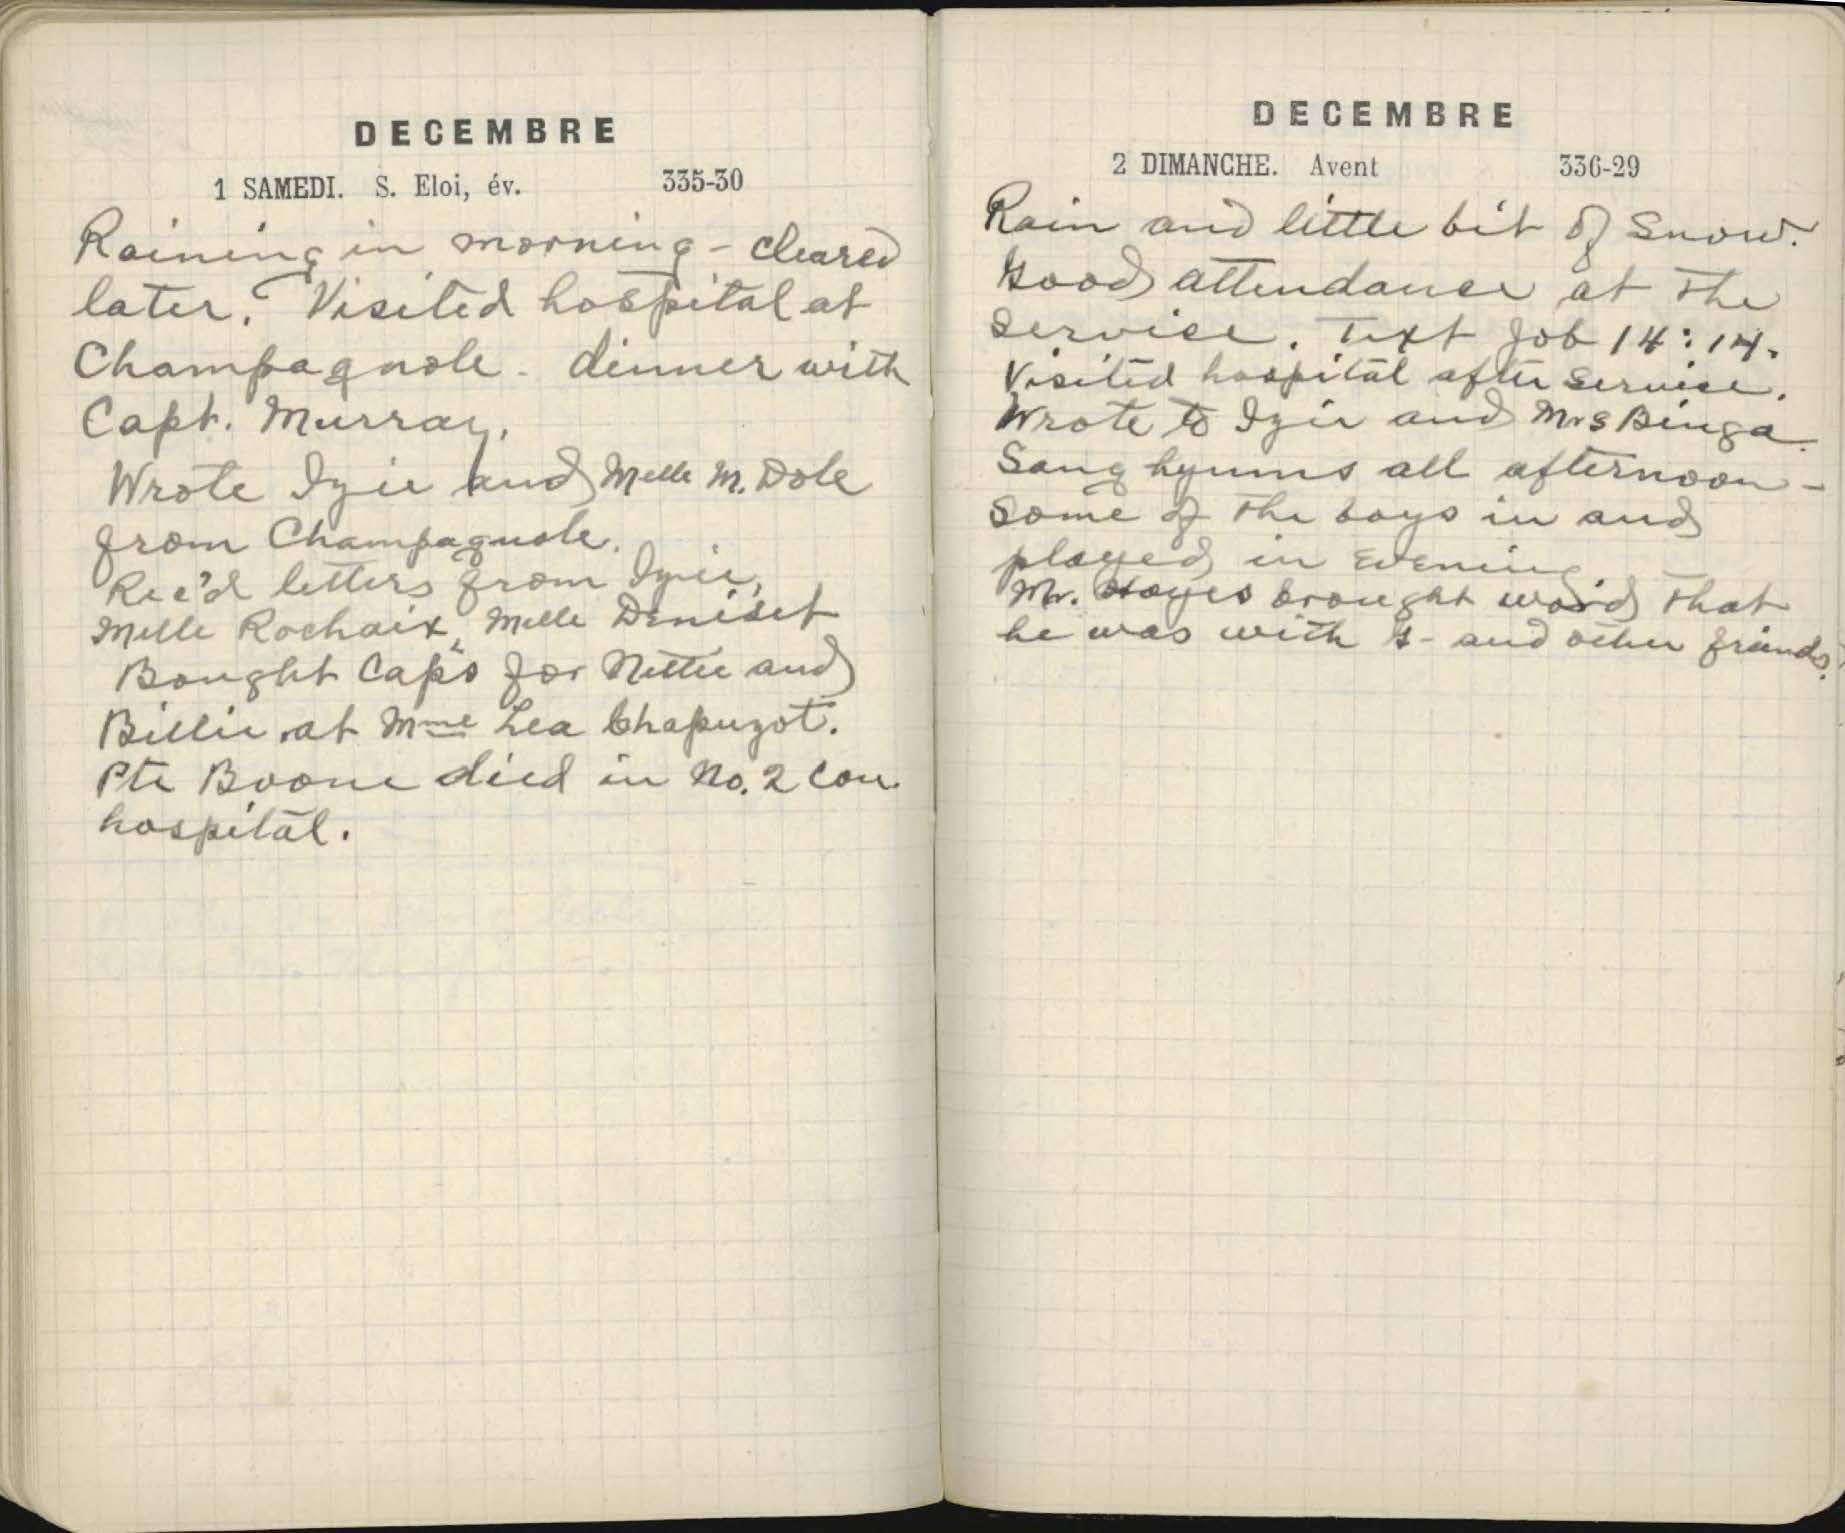 DECEMBRE
1 SAMEDI. S. Eloi, év. 335-30
Raining in morning - cleared
later. Visited hospital at
Champagnole - dinner with
Capt. Murray.
Wrote Izie and Melle M. Dole
from Champagnole.
Rec'd letters from Izie,
Melle Rochaix, Melle Deniset
Bought Caps for Nettie and
Billie at Mme Lea Chapuzot.
Pte Boone died in No. 2 Con.
hospital.
DECEMBRE
2 DIMANCHE. Avent 336-29
Rain and little bit of Snow.
Good attendance at the
service. Text Job 14:14.
Visited hospital after service.
Wrote to Izie and Mrs Binga.
Sang hymns all afternoon -
some of the boys in and
played in evening
Mr. Hayes brought word that
he was with - and other friends.